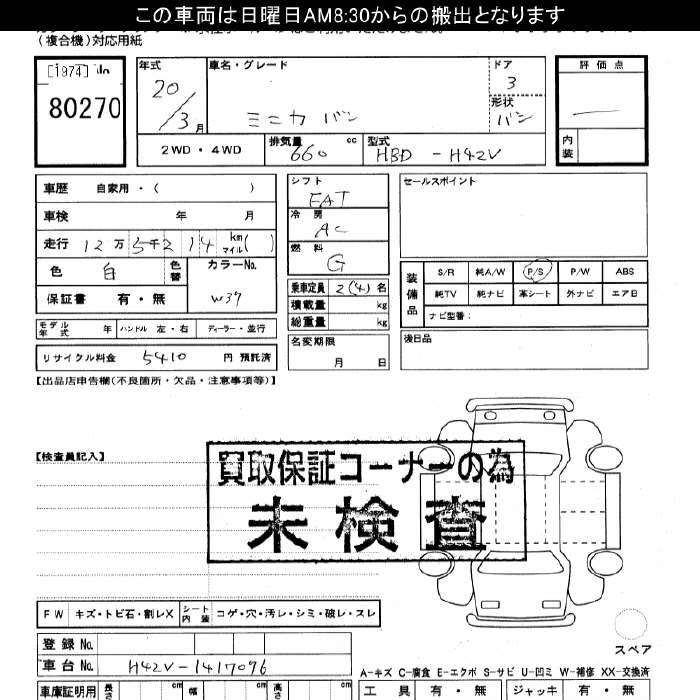 この車両は日曜日AM8:30からの搬出となります
(複合機)対応用紙
[1974] No
80270
年式
20/3月
車名・グレード
ミニカ バン
ドア
3
形状
バン
評価点
内装
2WD・4WD
排気量
660 cc
型式
HBD - H42V
車歴 自家用・( )
車検 年 月
走行 12万5千214 km マイル( )
色 白 色替
カラーNo.
W37
保証書 有・無
モデル年式 年 ハンドル 左・右 ディーラー・並行
リサイクル料金 5410 円 預託済
シフト
FAT
冷房
AC
燃料
G
乗車定員 2(4)名
積載量 kg
総重量 kg
名変期限
月 日
セールスポイント
装備品
S/R 純A/W P/S P/W ABS
純TV 純ナビ 革シート 外ナビ エアB
ナビ型番:
後日品
【出品店申告欄(不良箇所・欠品・注意事項等)】
【検査員記入】
買取保証コーナーの為
未検査
FW キズ・トビ石・割レX シート内装 コゲ・穴・汚レ・シミ・破レ・スレ
登録No.
車台No. H42V-1417096
スペア
A-キズ C-腐食 E-エクボ S-サビ U-凹ミ W-補修 XX-交換済
車庫証明用 長さ cm 幅 cm 高さ cm
工具 有・無 ジャッキ 有・無